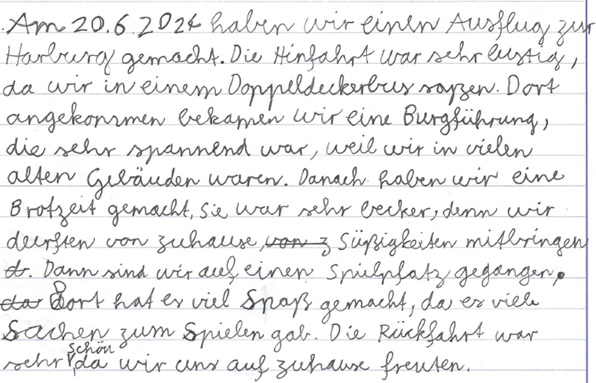 Am 20.6.2024 haben wir einen Ausflug zur
Harburg gemacht. Die Hinfahrt war sehr lustig,
da wir in einem Doppeldeckerbus saßen. Dort
angekommen bekamen wir eine Burgführung,
die sehr spannend war, weil wir in vielen
alten Gebäuden waren. Danach haben wir eine
Brotzeit gemacht, Sie war sehr lecker, denn wir
durften von zuhause, von z Süßigkeiten mitbringen
d. Dann sind wir auf einen Spielplatz gegangen.
da Dort hat es viel Spaß gemacht, da es viele
Sachen zum Spielen gab. Die Rückfahrt war
sehr schön, da wir uns auf zuhause freuten.